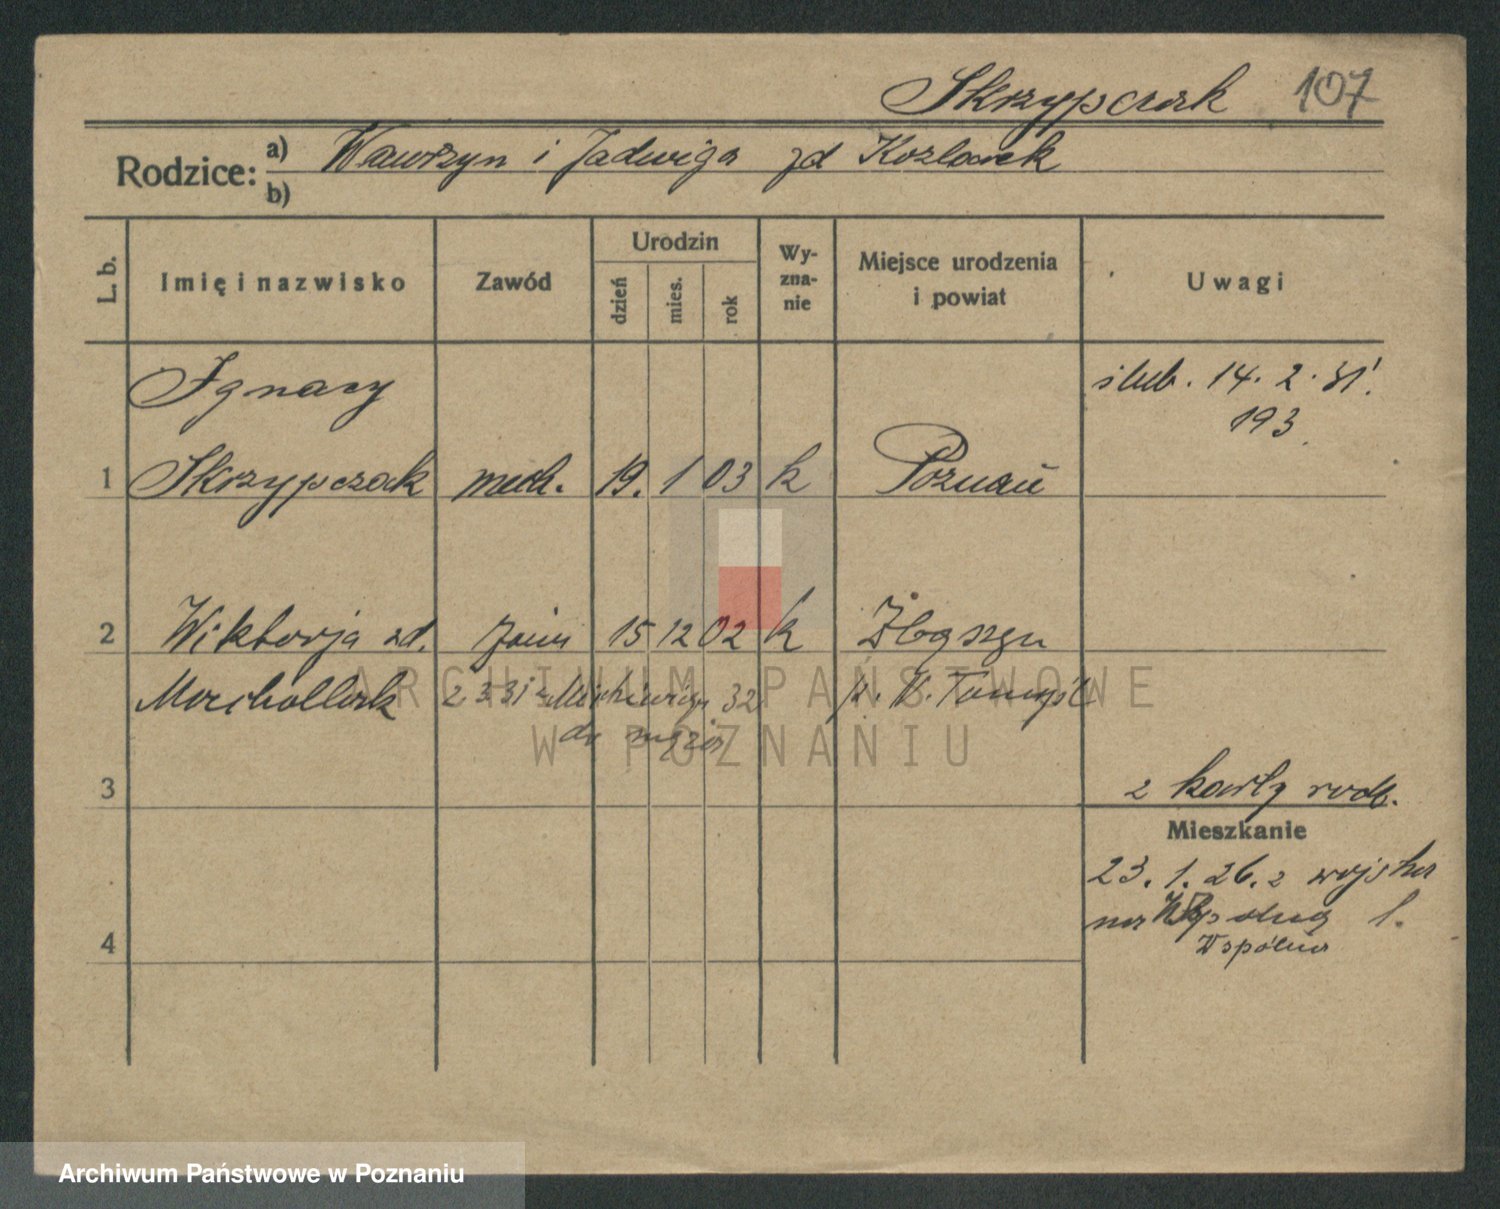 Skrzypczak 107
Rodzice: a) Wawrzyn i Jadwiga zd Kozlarek
b)
L. b. Imię i nazwisko Zawód Urodzin dzień mies. rok Wy-zna-nie Miejsce urodzenia i powiat Uwagi
Ignacy ślub. 14. 2. 31.
193
1 Skrzypczak mech. 19. 1 03 k Poznań
2 Wiktorja zd. 15 12 02 k Zbąszyn
2 3 31 z Mickiewicza 32 p. N. Tomyśl
do męża
3 z karty rodz.
Mieszkanie
23. 1. 26. z wojska
4 na 1.
Wspólna
ARCHIWUM PAŃSTWOWE
W POZNANIU
Archiwum Państwowe w Poznaniu